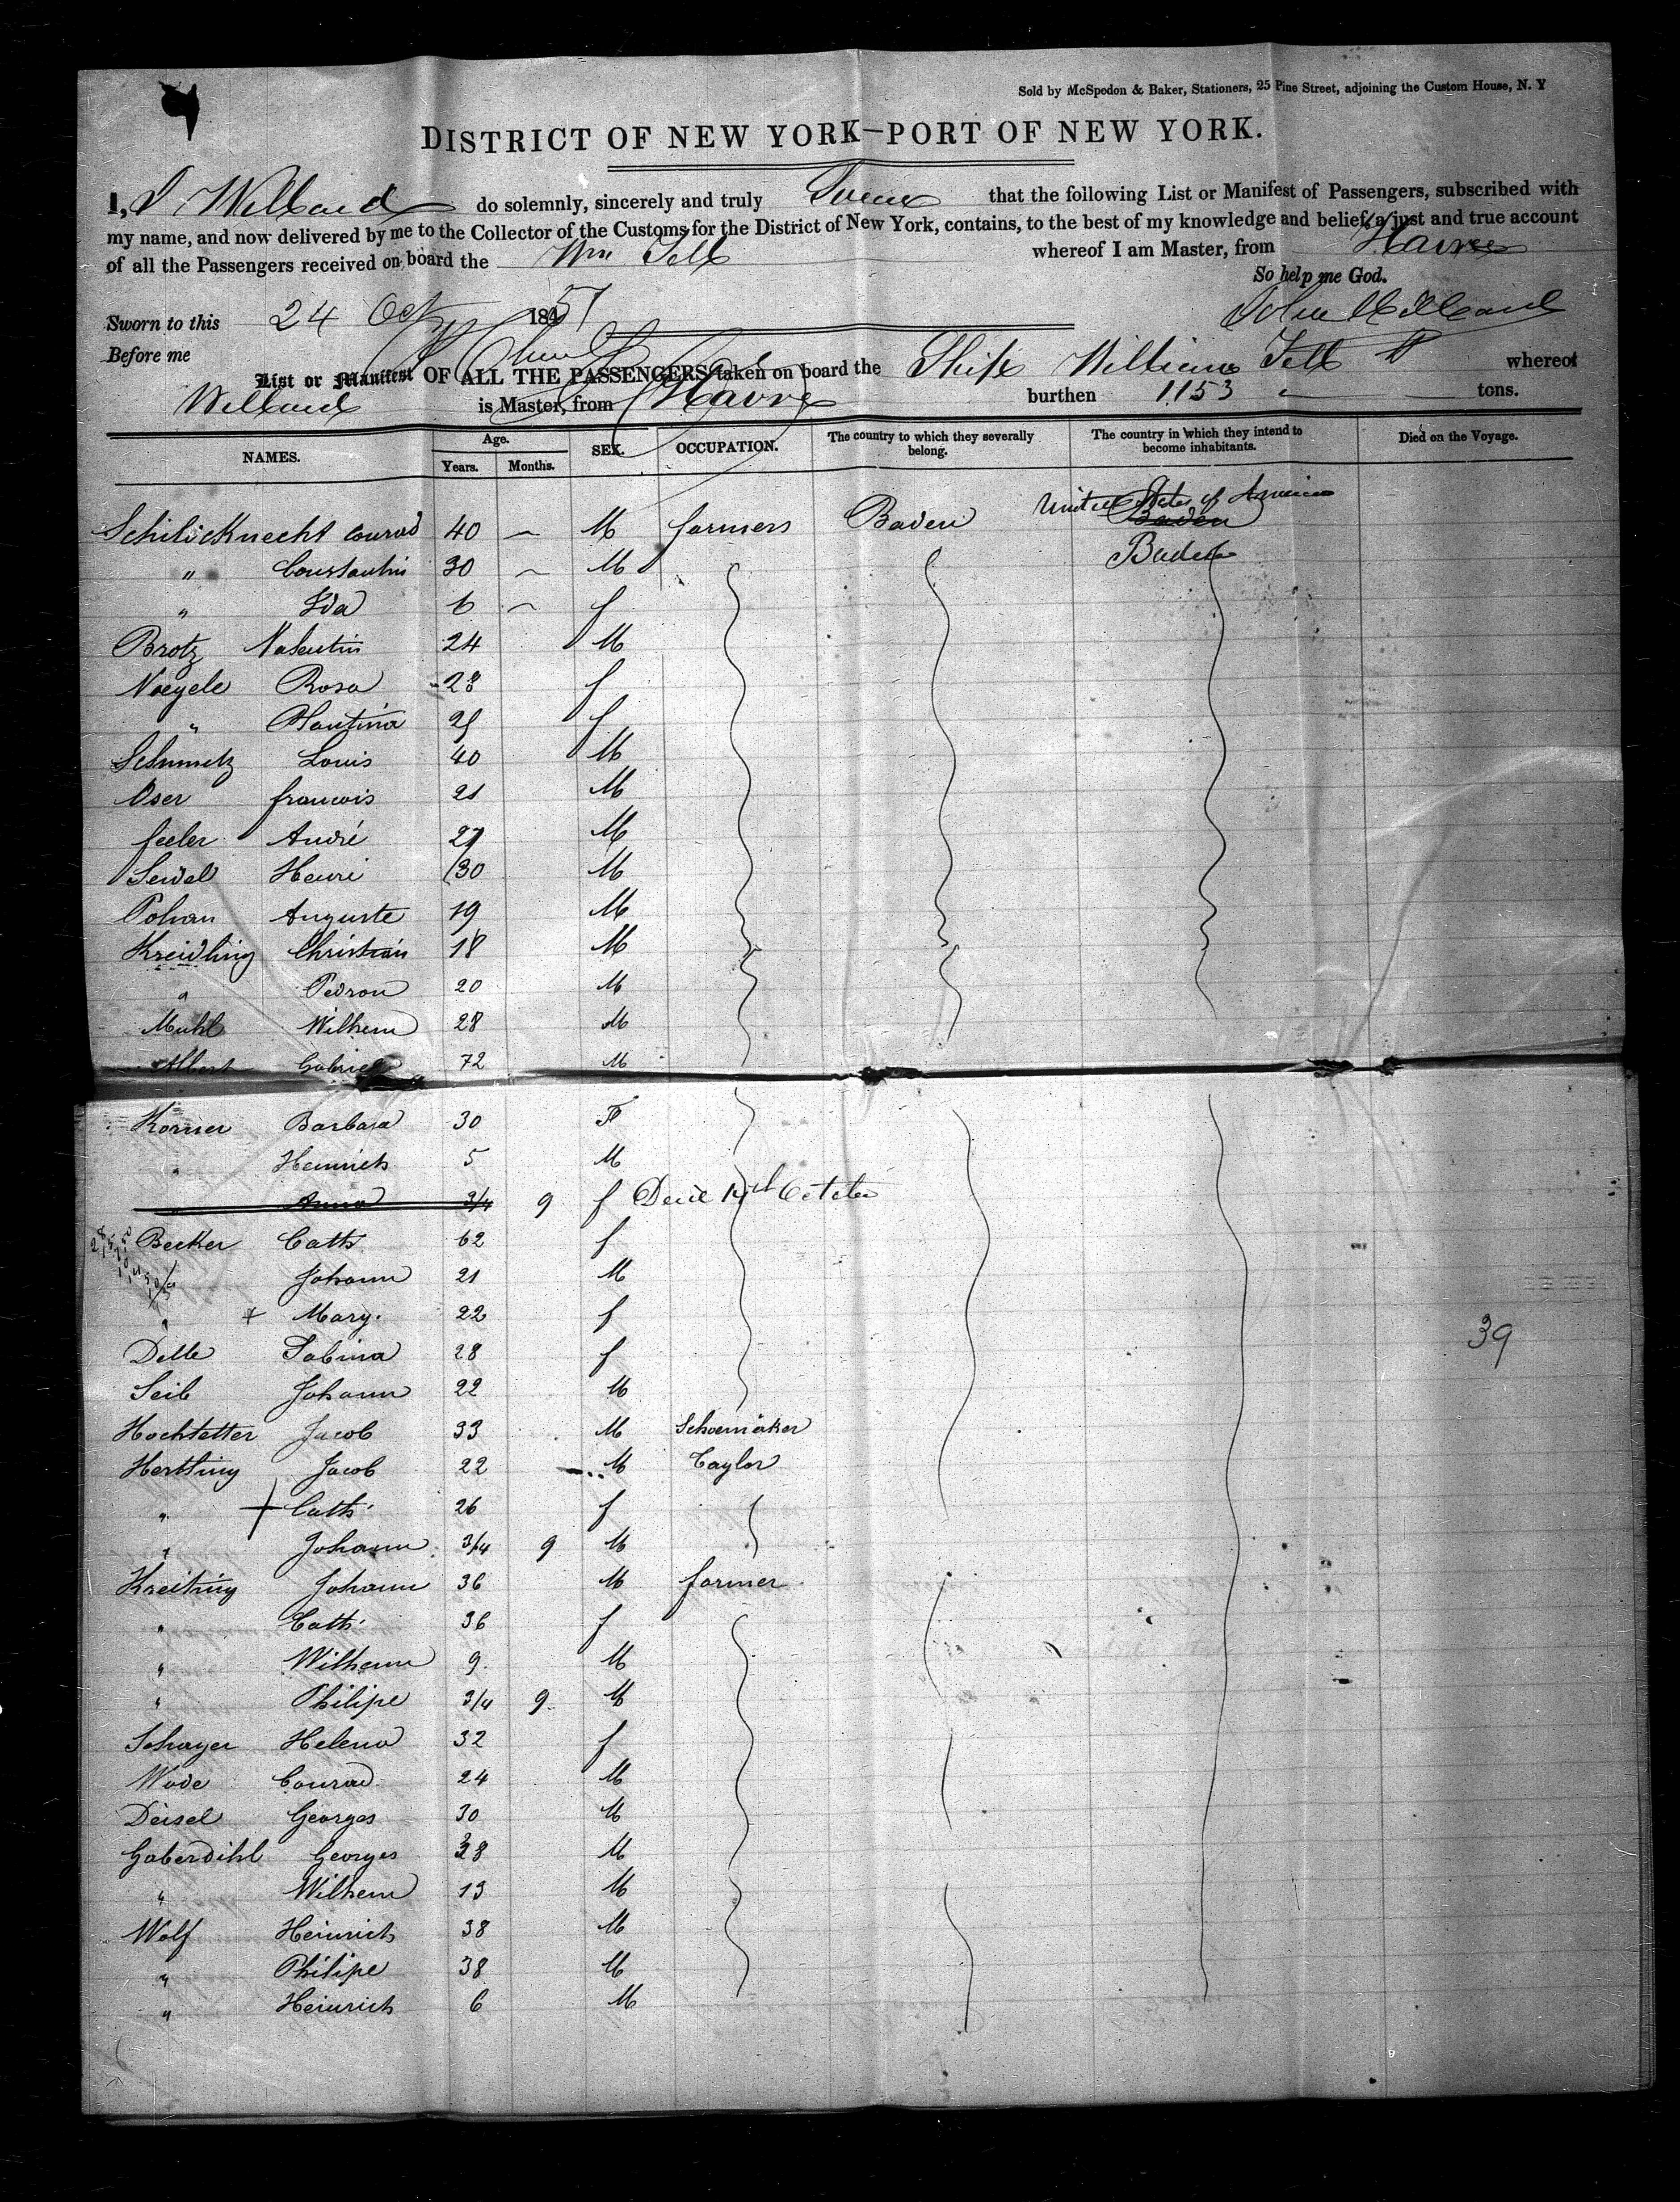 Sold by McSpedon & Baker, Stationers, 25 Pine Street, adjoining the Custom House, N. Y
DISTRICT OF NEW YORK—PORT OF NEW YORK.
I, J Willard do solemnly, sincerely and truly Swear that the following List or Manifest of Passengers, subscribed with
my name, and now delivered by me to the Collector of the Customs for the District of New York, contains, to the best of my knowledge and belief, a just and true account
of all the Passengers received on board the Wm Tell whereof I am Master, from Havre
So help me God.
Sworn to this 24 Oct 1851 John Willard
Before me
List or Manifest OF ALL THE PASSENGERS taken on board the Ship William Tell whereof
Willard is Master, from Havre burthen 1153 tons.
NAMES. Age. Years. Months. SEX. OCCUPATION. The country to which they severally belong. The country in which they intend to become inhabitants. Died on the Voyage.
United States of America
Schilicknecht Conrad 40 — M farmers Baden Baden
" Constantin 30 — M Baden
" Ida 6 — f
Brotz Valentin 24 M
Noegele Rosa 28 f
" f
Schmetz Louis 40 M
Oser francois 21 M
feeler André 27 M
Seidel Henri 30 M
Pohan Auguste 19 M
Kreidling Christian 18 M
" Pedron 20 M
Muhl Wilhem 28 M
Albert Gabriel 72 M
Korner Barbara 30 F
" Heinrich 5 M
" Anna 3/4 9 f October
Becker Cath. 62 f
" Johann 21 M
" + Mary. 22 f
Delle Sabina 28 f
39
Seib Johann 22 M
Hochtetter Jacob 33 M Schoemaker
Hertling Jacob 22 M Taylor
" + Cath. 26 f
" Johann 3/4 9 M
Kreiting Johann 36 M farmer
" Cath. 36 f
" Wilhem 9. M
" Philipe 3/4 9. M
Schayer Helena 32 f
Wode Conrad 24 M
Deisel Georges 30 M
Gaberdihl Georges 38 M
" Wilhem 13 M
Wolf Heinrich 38 M
" Philipe 38 M
" Heinrich 6 M